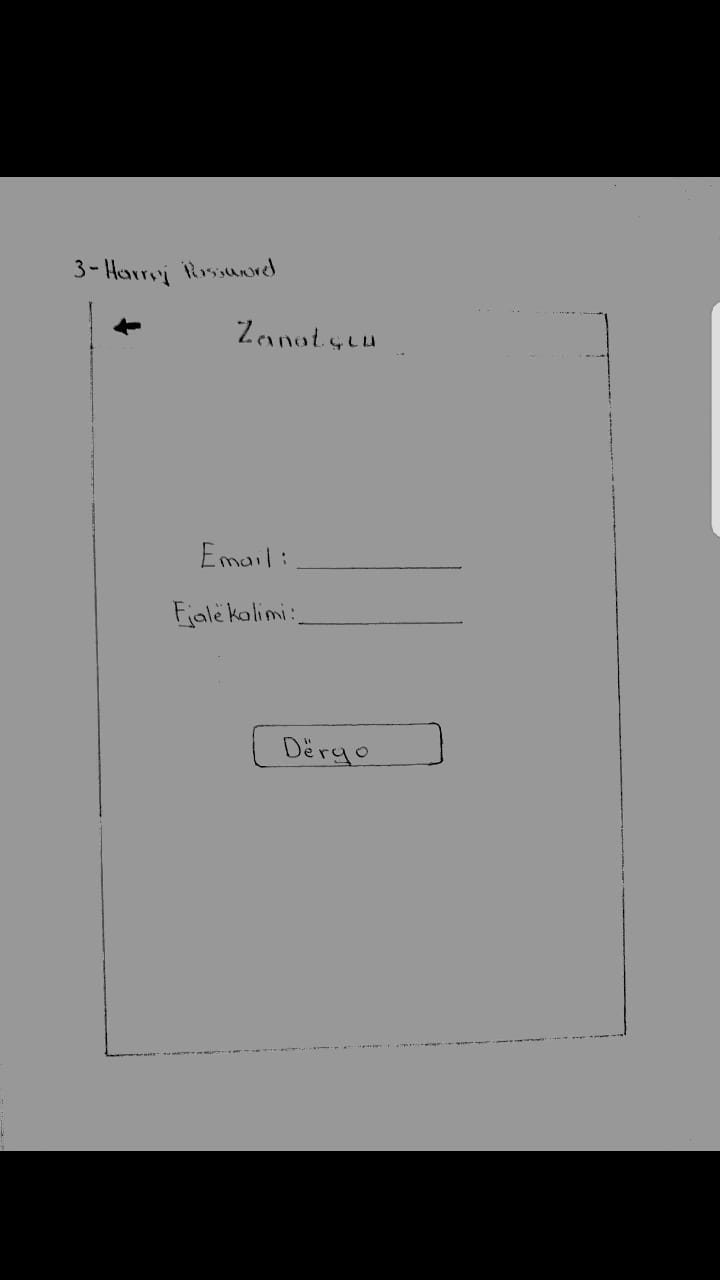 3-Harroj Password
Zanatçiu
Email:
Fjalëkalimi:
Dërgo